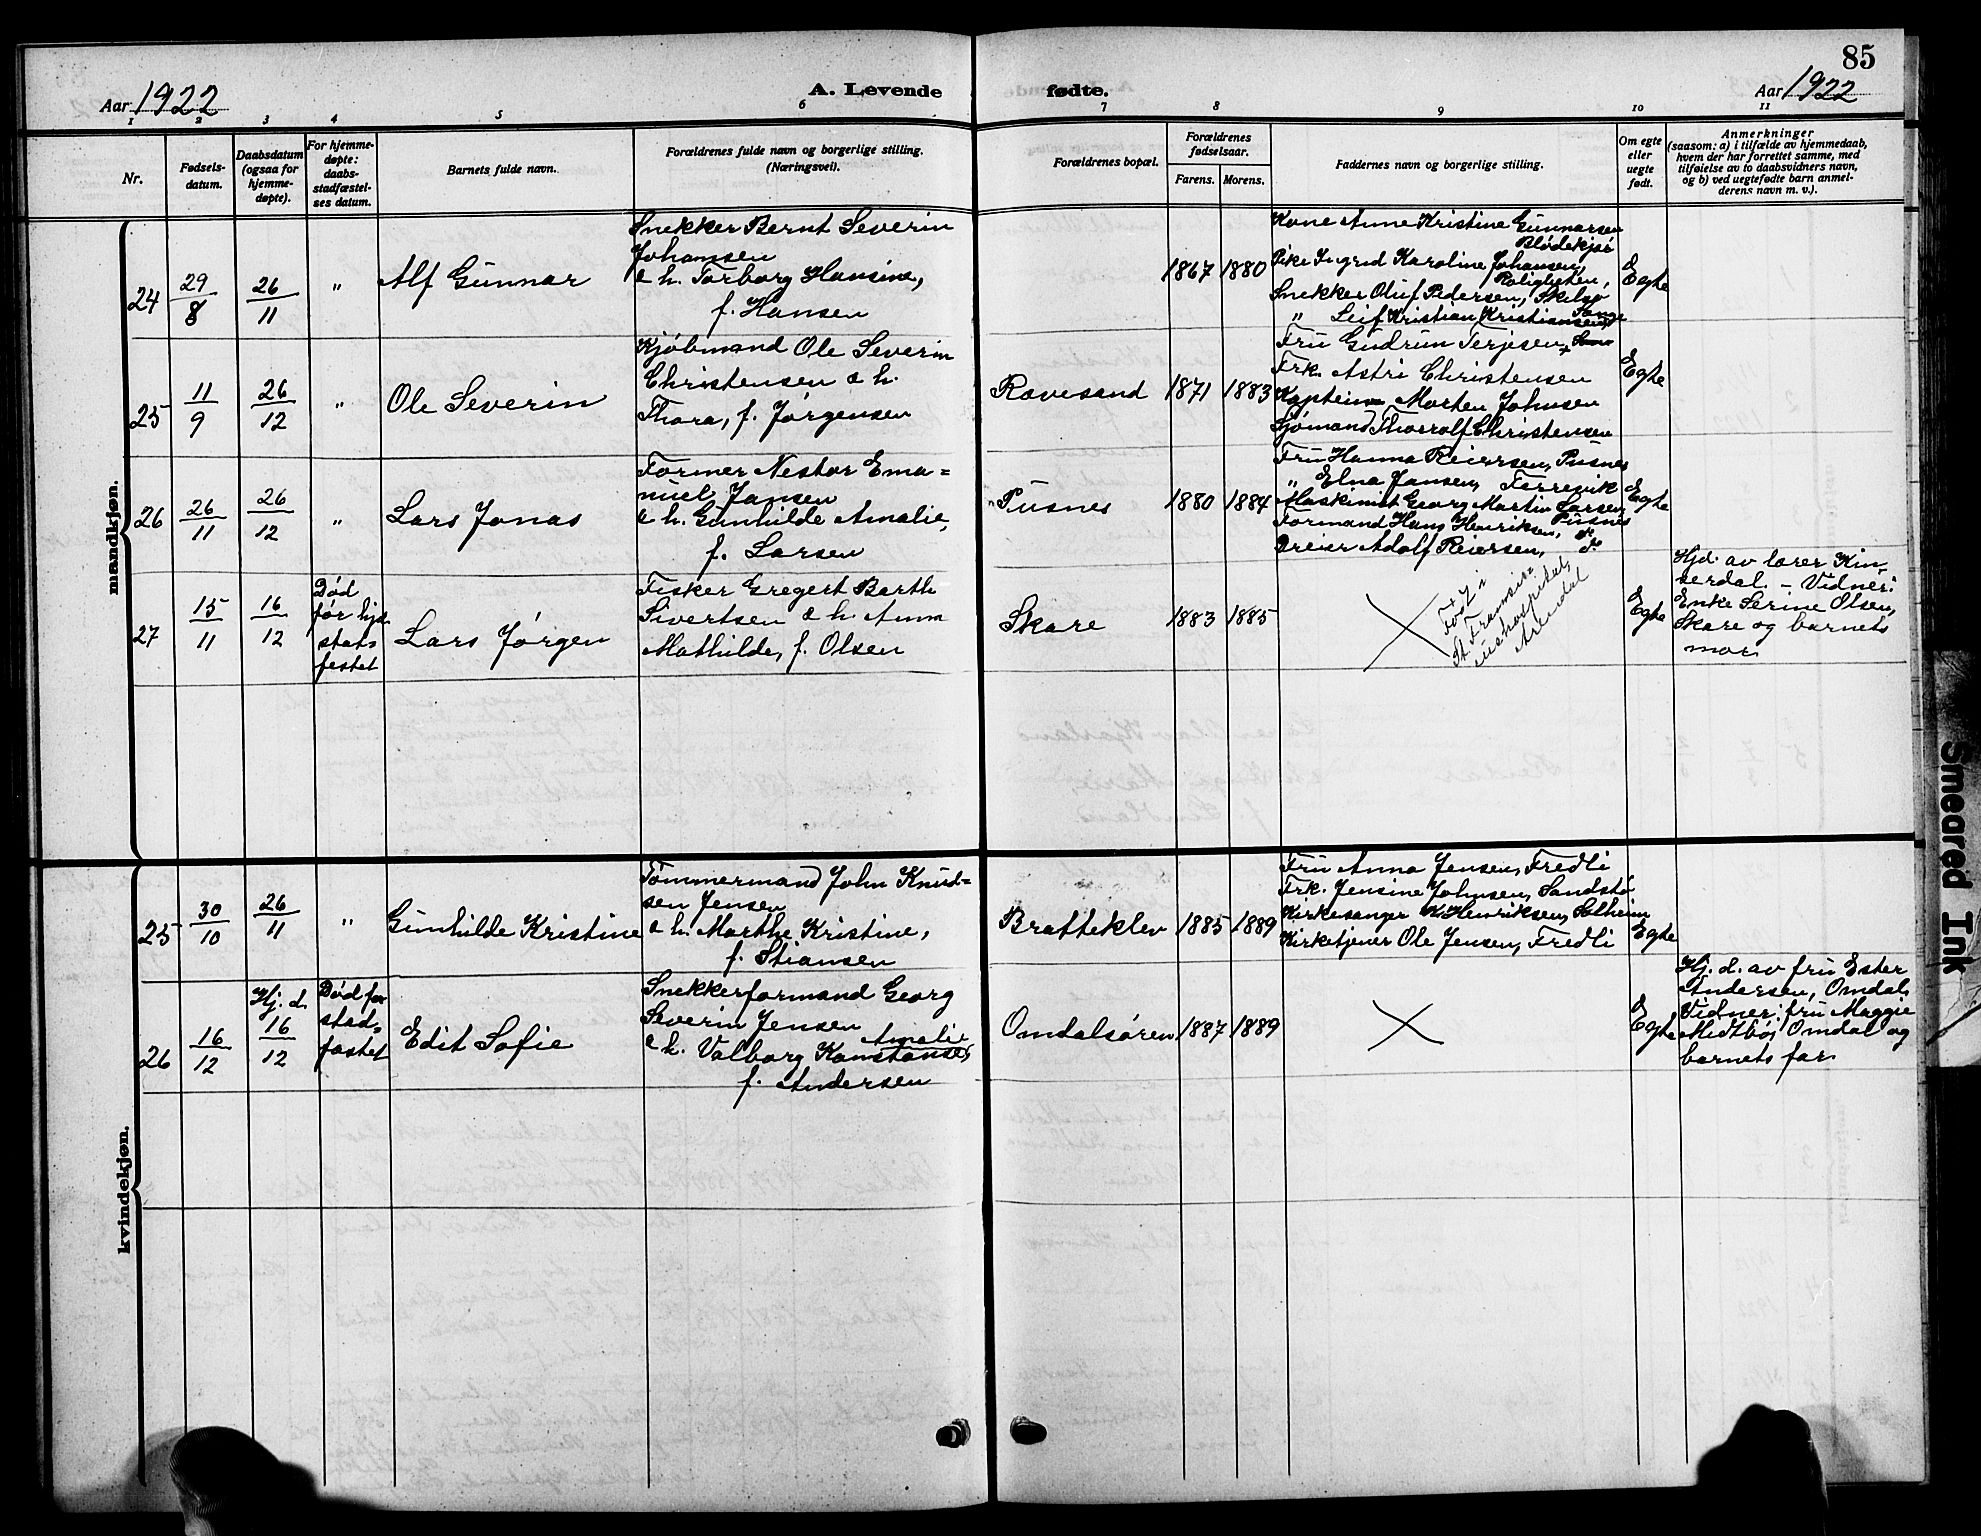 85
Aar 1922
A. Levende
fødte.
Aar 1922
1
2
3
4
5
6
7
8
9
10
11
Nr.
Fødsels-
datum.
Daabsdatum
(ogsaa for
hjemme-
døpte).
For hjemme-
døpte:
daabs-
stadfæstel-
ses datum.
Barnets fulde navn.
Forældrenes fulde navn og borgerlige stilling.
(Næringsvei).
Forældrenes bopæl.
Forældrenes
fødselsaar.
Farens.
Morens.
Faddernes navn og borgerlige stilling.
Om egte
eller
uegte
født.
Anmerkninger
(saasom: a) i tilfælde av hjemmedaab,
hvem der har forrettet samme, med
tilføielse av to daabsvidners navn,
og b) ved uegtefødte barn anmel-
derens navn m. v.).
mandkjøn.
24
29/8
26/11
"
Alf Gunnar
Snekker Bernt Severin
Johansen
& h. Torborg Hansine,
f. Hansen
1867
1880
Kone Anne Kristine Gunnarsen
Blødekjær
Pike Ingrid Karoline Johansen,
Roligheten,
Snekker Oluf Pedersen, Skilsø
" Leif Kristian Kristiansen,
Egte
25
11/9
26/12
"
Ole Severin
Kjøbmand Ole Severin
Christensen & h.
Thora, f. Jørgensen
Ravesand
1871
1883
Fru Gudrun Terjesen,
Frk. Astri Christensen
Kaptein Morten Johnsen
Sjømand Thorolf Christensen
Egte
26
26/11
26/12
"
Lars Jonas
Former Nestor Ema=
nuel Jansen
& h. Gunhilde Amalie,
f. Larsen
Pusnes
1880
1884
Fru Hanna Reiersen, Pusnes
" Elna Jansen, Færevik
Maskinist Georg Martin Larsen,
Pusnes
Formand Hans Henriksen, do
Dreier Adolf Reiersen, do
Egte
27
15/11
16/12
Død
før hjd.
stad-
festet
Lars Jørgen
Fisker Gregert Barth
Sivertsen & h. Anna
Mathilde, f. Olsen
Skare
1883
1885
Født i
St. Fransis=
cushospitel,
Arendal
Egte
Hjd. av lærer Kin-
serdal. - Vidner:
Enke Serine Olsen,
Skare og barnets
mor.
kvindekjøn.
25
30/10
26/11
"
Gunhilde Kristine
Tømmermand John Knud=
sen Jensen
& h. Marthe Kristine,
f. Stiansen
Bratteklev
1885
1889
Fru Anna Jensen, Fredli
Frk. Jensine Johnsen, Sandstø
Kirkesanger K. Henriksen, Solheim
Kirketjener Ole Jensen, Fredli
Egte
26
16/12
Hj. d.
16/12
Død før
stad-
fæstet
Edit Sofie
Snekkerformand Georg
Severin Jensen
Amalie
& h. Valborg Konstanse,
f. Andersen
Omdalsøren
1887
1889
Egte
Hj. d. av fru Ester
Andersen, Omdal.
Vidner: fru Maggie
Midtbø, Omdal og
barnets far.
Smeared Ink